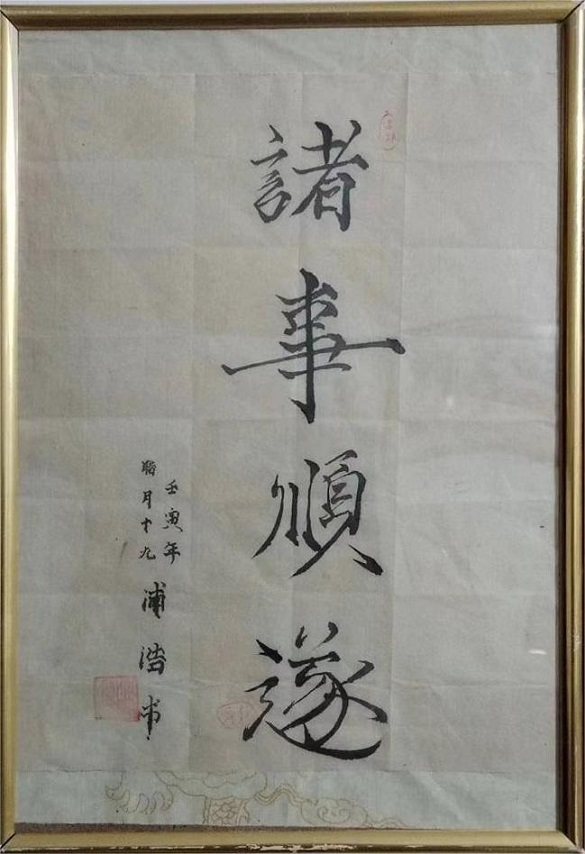 諸事順遂
壬寅年
臘月十九 浦浩书